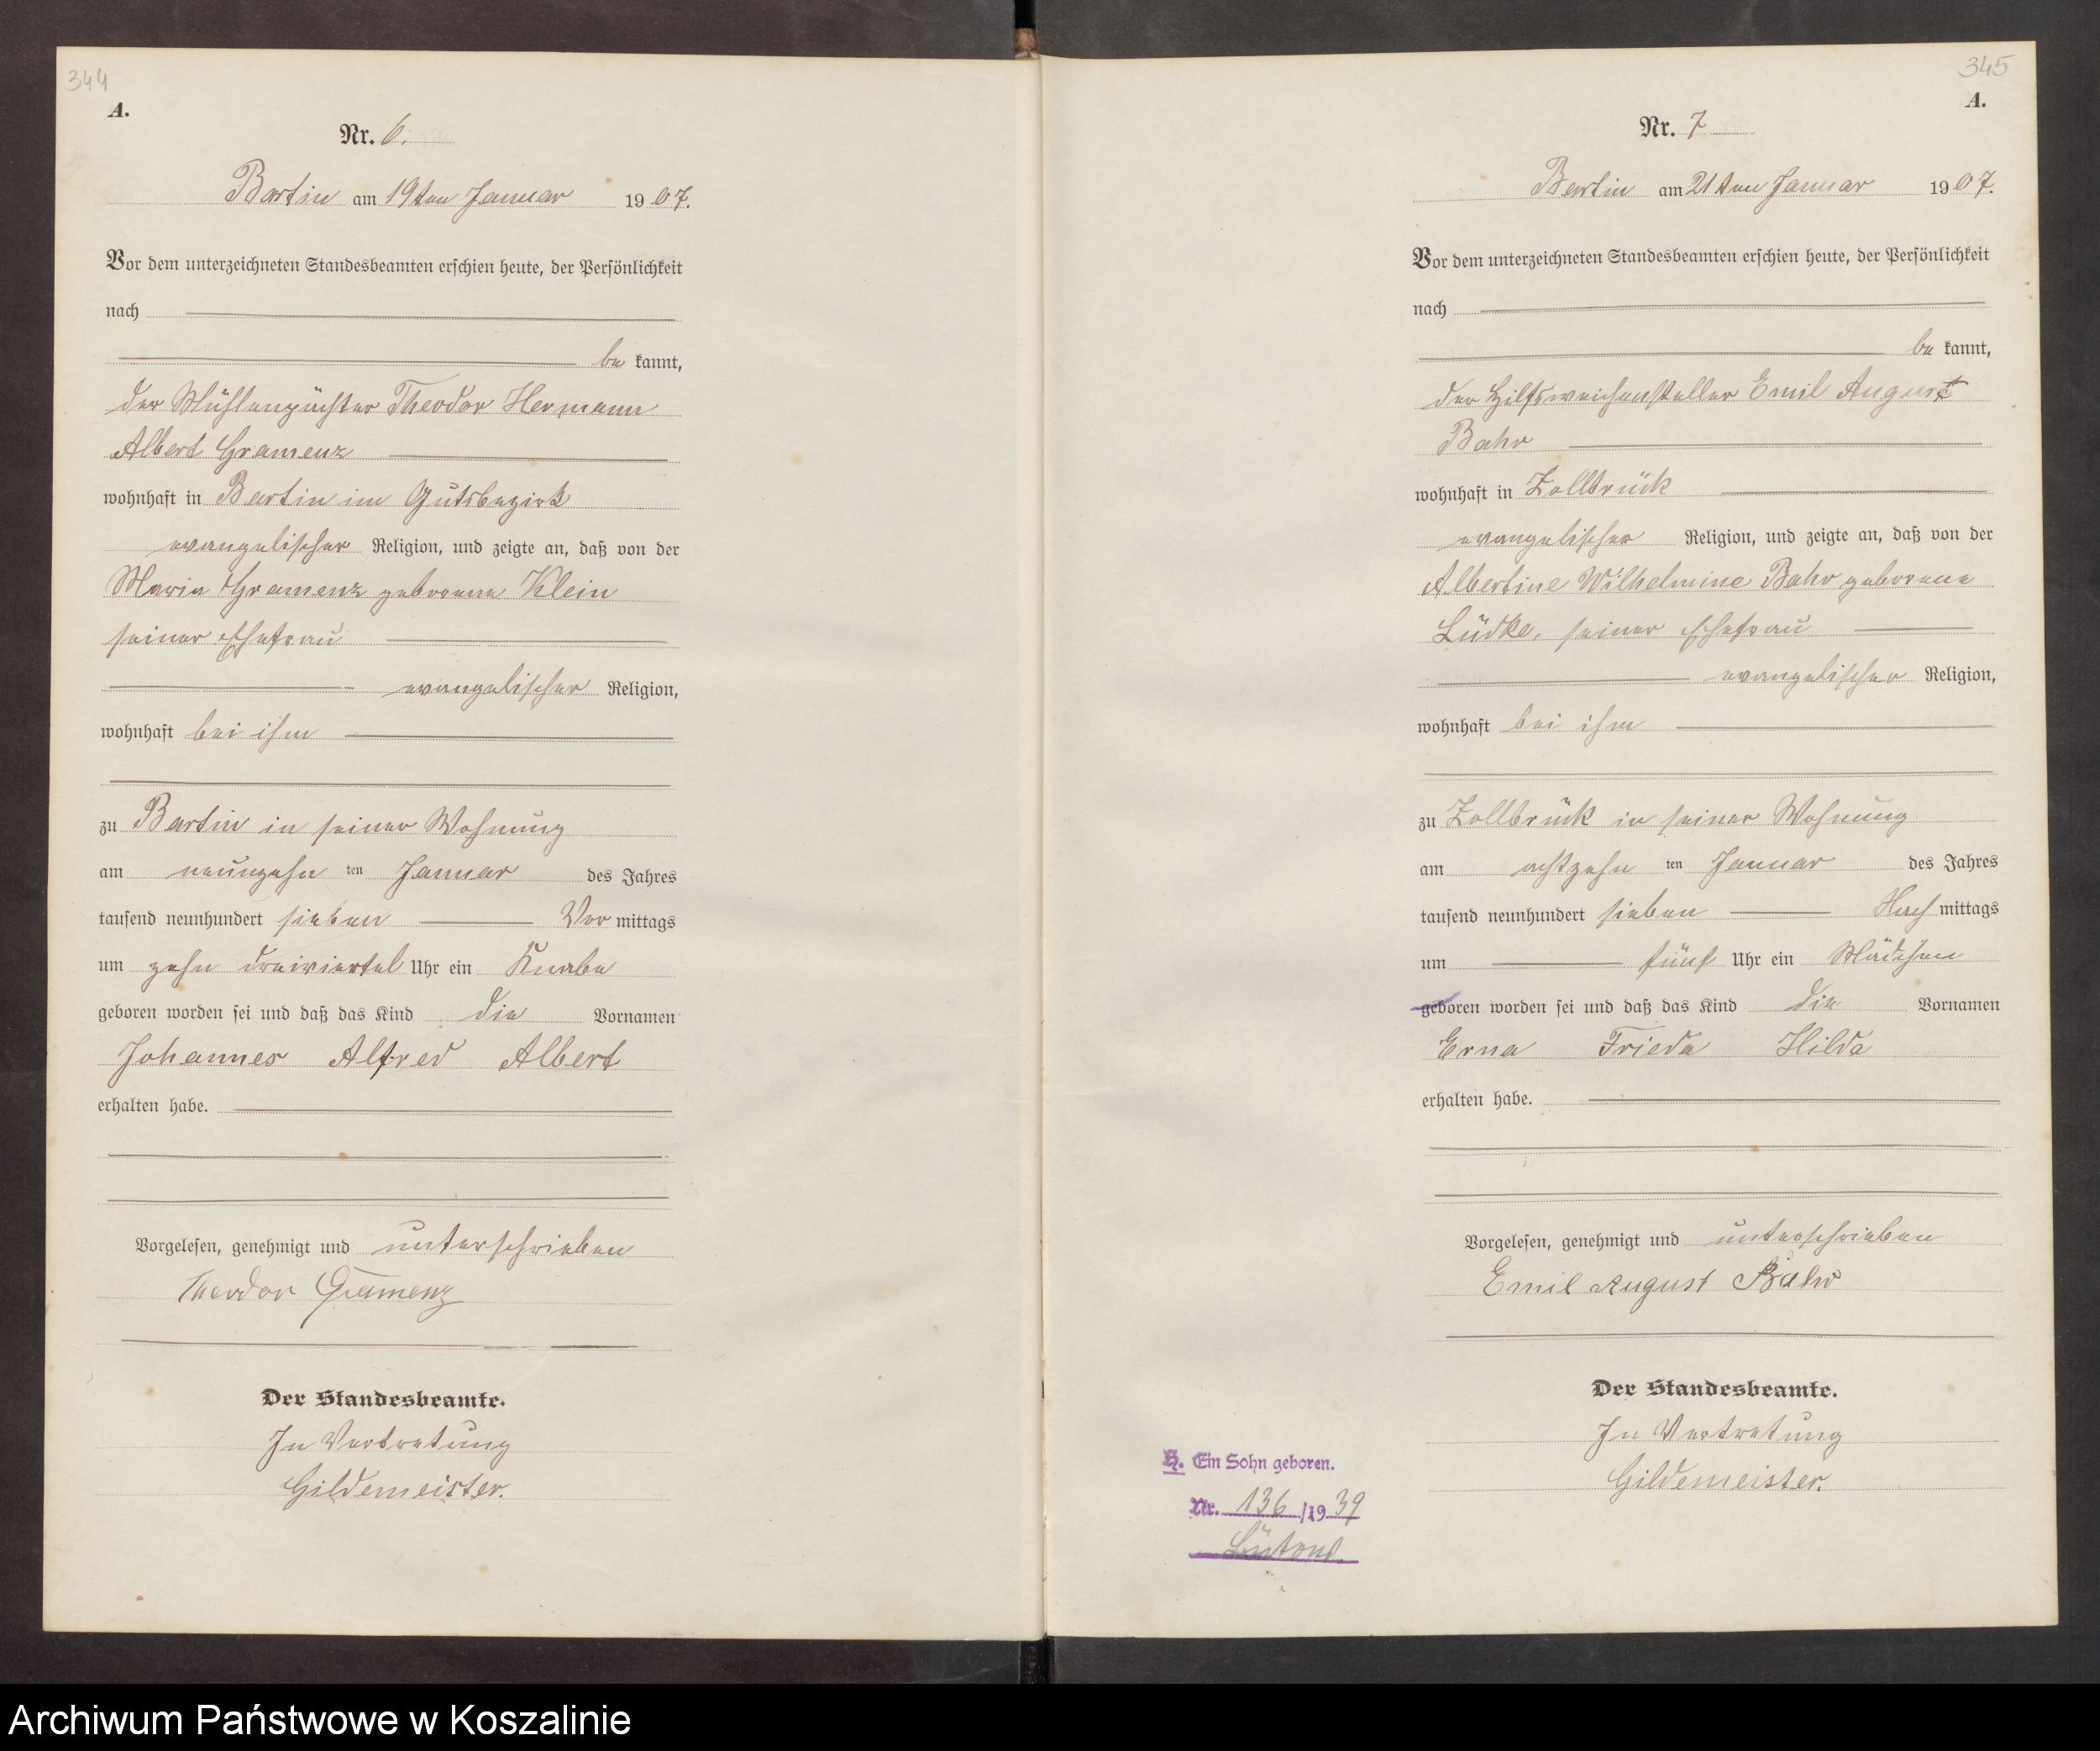 344
A.
Nr. 6.
Bartin am 19ten Januar 1907.
Vor dem unterzeichneten Standesbeamten erschien heute, der Persönlichkeit
nach
be kannt,
der Mühlenpächter Theodor Hermann
Albert Gramenz
wohnhaft in Bartin im Gutsbezirk
evangelischer Religion, und zeigte an, daß von der
Maria Gramenz geborene Klein
seiner Ehefrau
evangelischer Religion,
wohnhaft bei ihm
zu Bartin in seiner Wohnung
am neunzehn ten Januar des Jahres
tausend neunhundert sieben Vor mittags
um zehn dreiviertel Uhr ein Knabe
geboren worden sei und daß das Kind die Vornamen
Johannes Alfred Albert
erhalten habe.
Vorgelesen, genehmigt und unterschrieben
Theodor Gramenz
Der Standesbeamte.
In Vertretung
Gildemeister.
345
A.
Nr. 7
Bartin am 21ten Januar 1907.
Vor dem unterzeichneten Standesbeamten erschien heute, der Persönlichkeit
nach
be kannt,
der Hilfsweichensteller Emil August
Bahr
wohnhaft in Zollbrück
evangelischer Religion, und zeigte an, daß von der
Albertine Wilhelmine Bahr geborene
Lüdke, seiner Ehefrau
evangelischer Religion,
wohnhaft bei ihm
zu Zollbrück in seiner Wohnung
am achtzehn ten Januar des Jahres
tausend neunhundert sieben Nach mittags
um fünf Uhr ein Mädchen
geboren worden sei und daß das Kind die Vornamen
Erna Frieda Hilda
erhalten habe.
Vorgelesen, genehmigt und unterschrieben
Emil August Bahr
Der Standesbeamte.
In Vertretung
Gildemeister.
Ein Sohn geboren.
Nr. 136/1939
Archiwum Państwowe w Koszalinie